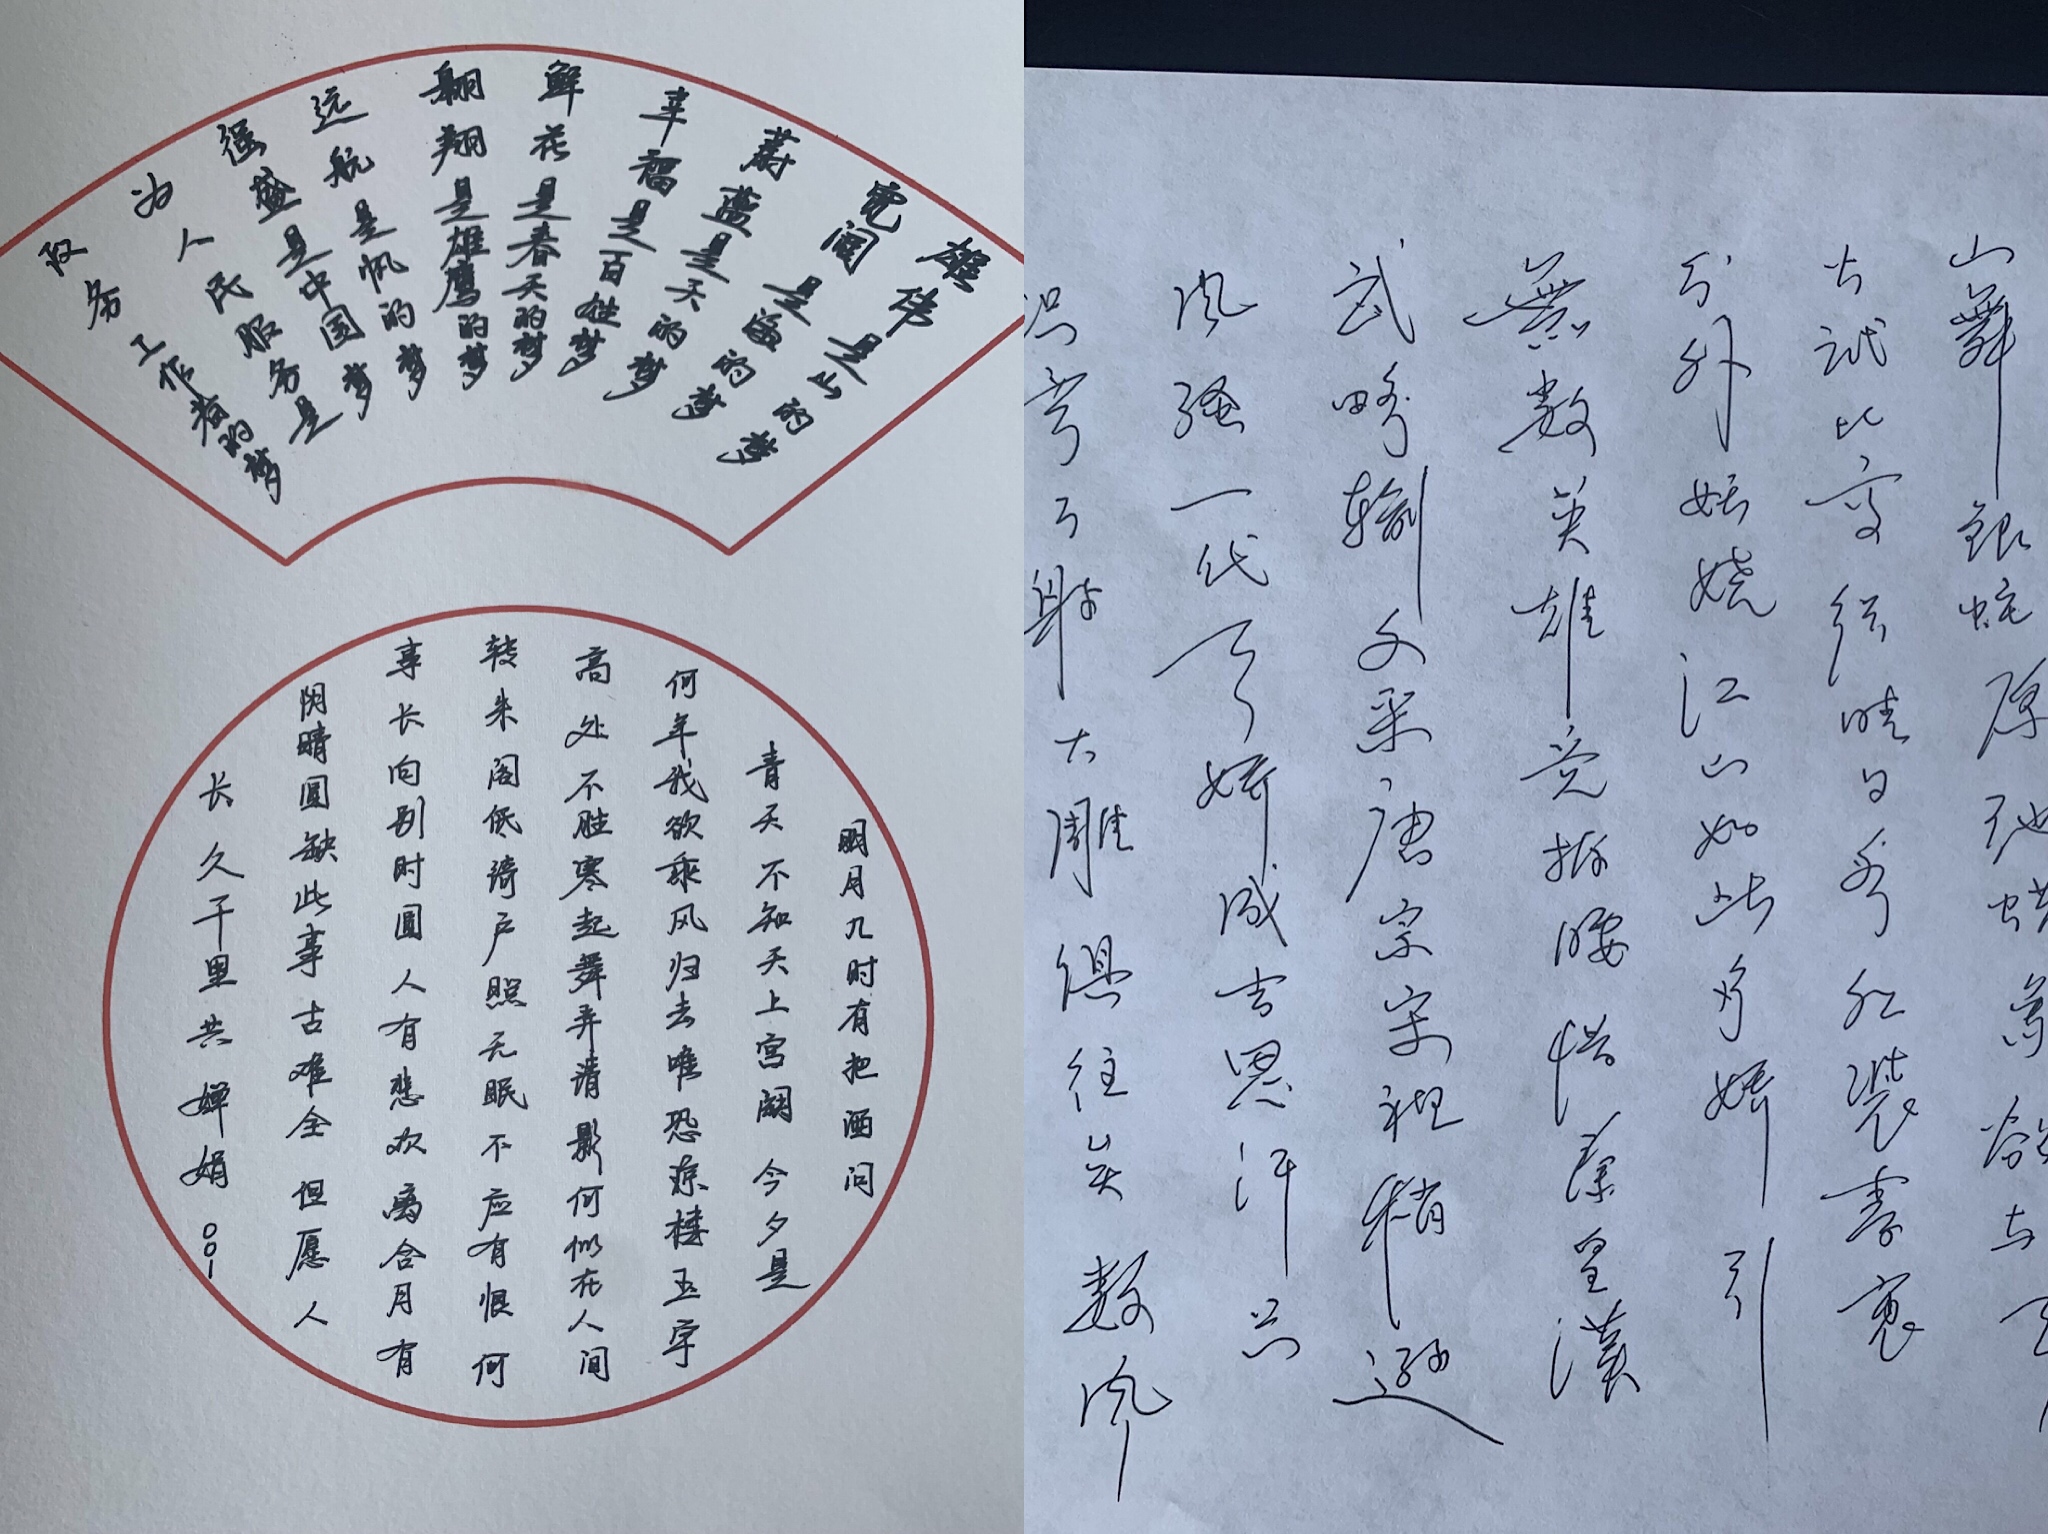 雄伟是山的梦
宽阔是海的梦
蔚蓝是天的梦
幸福是百姓梦
鲜花是春天的梦
翱翔是雄鹰的梦
远航是帆的梦
强盛是中国梦
为人民服务是
政务工作者的梦
明月几时有把酒问
青天不知天上宫阙今夕是
何年我欲乘风归去唯恐琼楼玉宇
高处不胜寒起舞弄清影何似在人间
转朱阁低绮户照无眠不应有恨何
事长向别时圆人有悲欢离合月有
阴晴圆缺此事古难全但愿人
长久千里共婵娟 001
山舞銀蛇原驰蜡象欲与天
试比高须晴日看红装素裹
分外妖娆江山如此多嬌引
無数英雄竞折腰惜秦皇漢
武略输文采唐宗宋祖稍逊
风骚一代天嬌成吉思汗只
识弯弓射大雕俱往矣数风